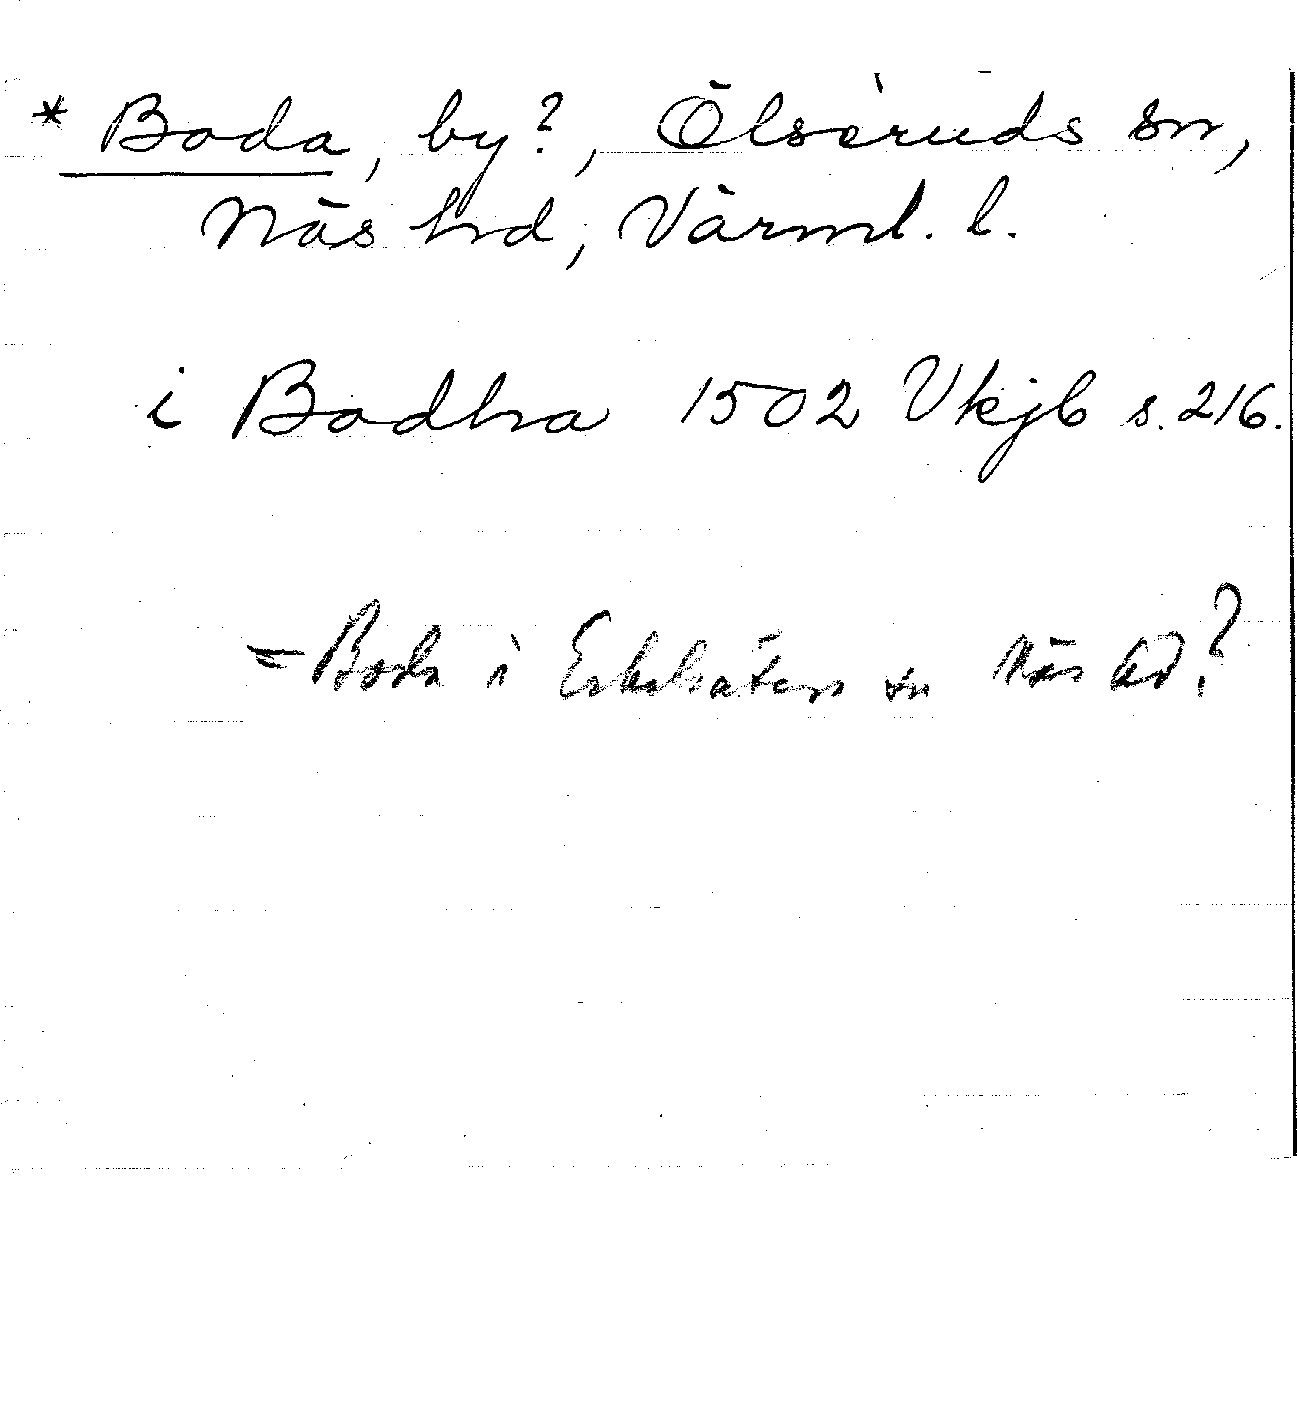 * Boda, by?, Ölseruds sn,
Näs hd, Värml. l.
i Bodha 1502 Vkjb s. 216.
= Boda i Eskilsäters sn Näs hd?